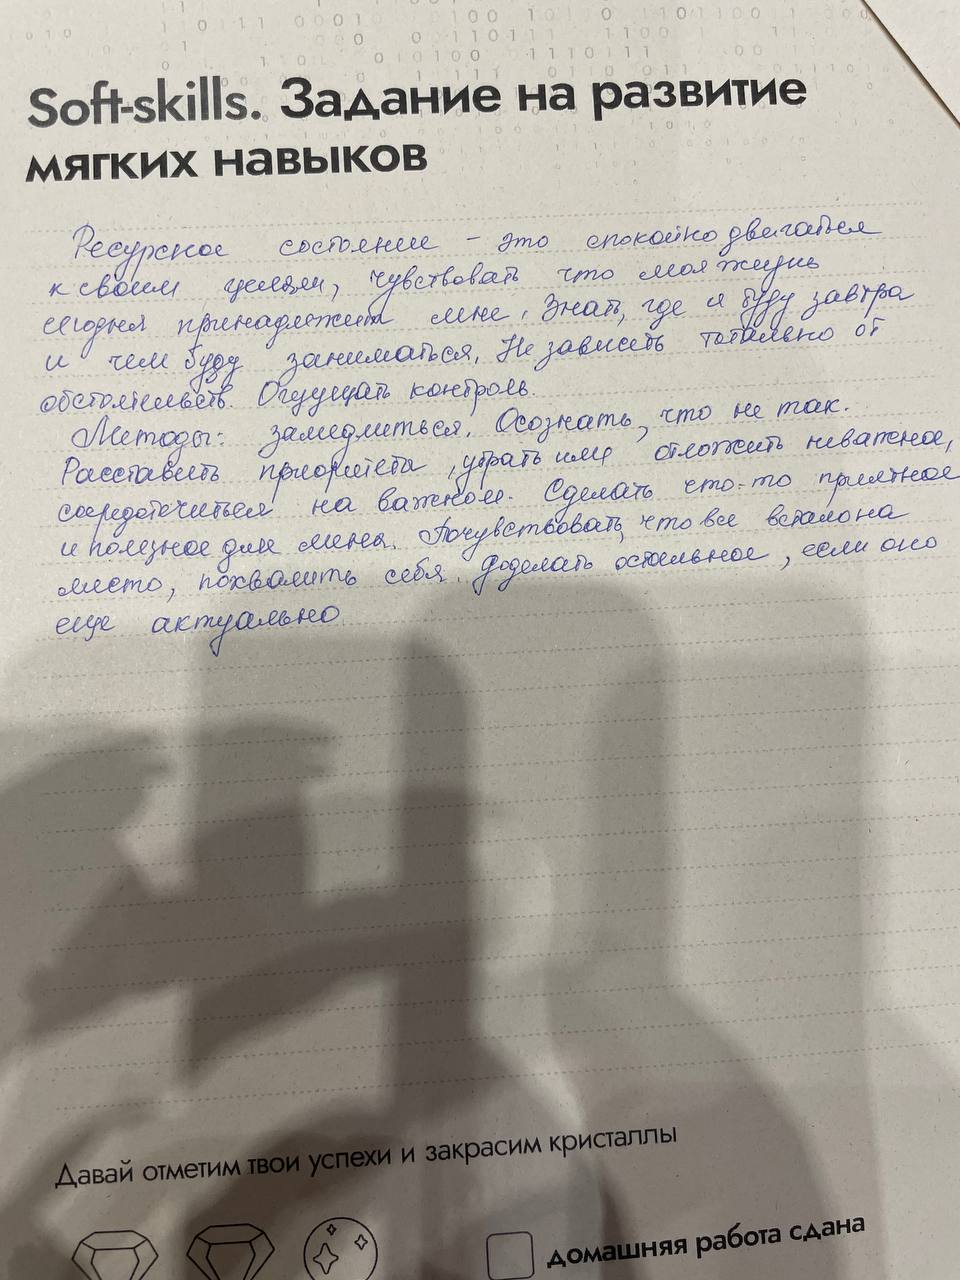 Soft-skills. Задание на развитие
мягких навыков
Ресурсное состояние - это спокойно двигаться
к своим целям, чувствовать что моя жизнь
сегодня принадлежит мне. Знать, где я буду завтра
и чем буду заниматься. Не зависеть тотально от
обстоятельств. Ощущать контроль.
Методы: замедлиться. Осознать, что не так.
Расставить приоритеты, убрать или отложить неважное,
сосредоточиться на важном. Сделать что-то приятное
и полезное для меня. Почувствовать, что все встало на
место, похвалить себя. Доделать остальное, если оно
еще актуально
Давай отметим твои успехи и закрасим кристаллы
домашняя работа сдана